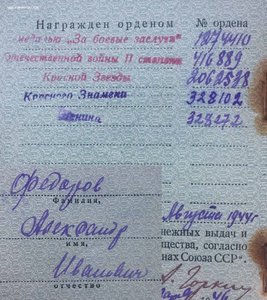 Награжден орденом
№ ордена
медалью „За боевые заслуги"
1874410
Отечественной войны II степени
416889
Красной Звезды
2062588
Красного Знамени
328102
Ленина
328272
Федоров
Фамилия,
Александр
имя,
Иванович
отчество
Августа 1944 г.
нежных выдач и
щества, согласно
нах Союза ССР".
А. Горкин